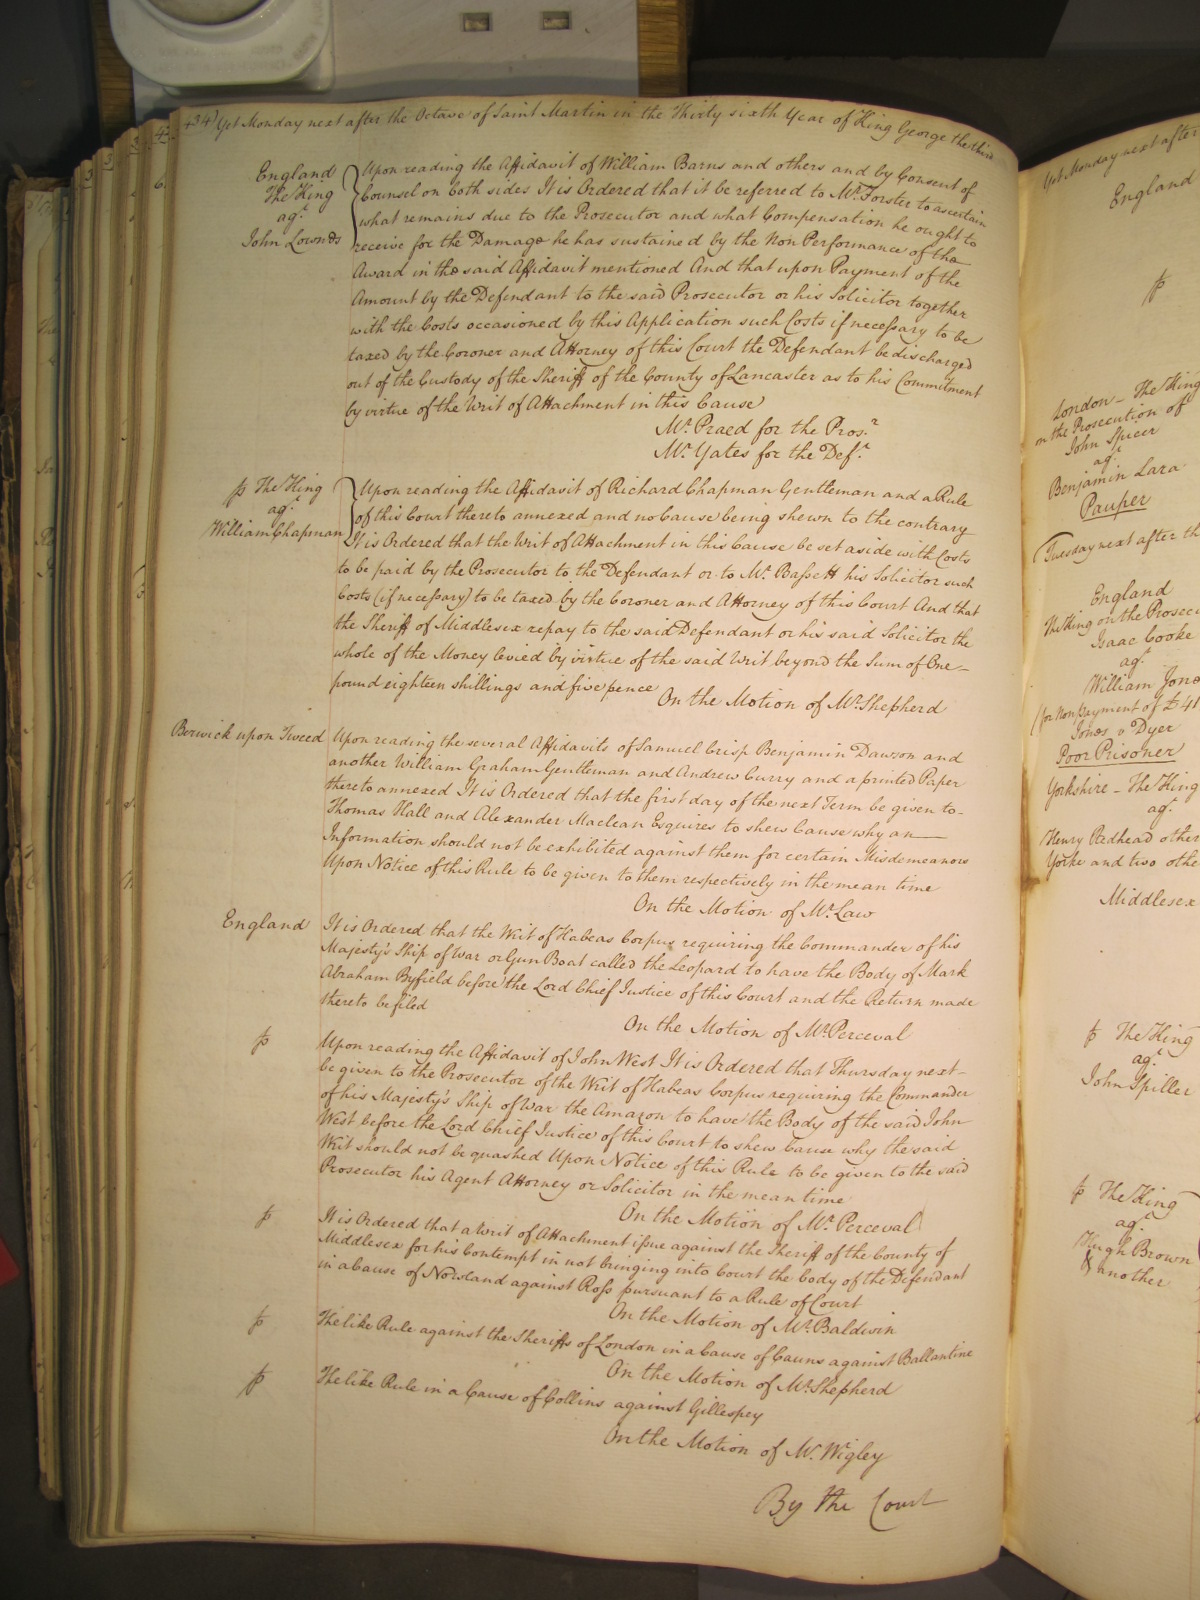 434) Yet Monday next after the Octave of Saint Martin in the Thirty sixth Year of King George the third
England
The King
agt.
John Lownds
Upon reading the Affidavit of William Barns and others and by Consent of
Counsel on both sides It is Ordered that it be referred to Mr. Forster to ascertain
what remains due to the Prosecutor and what Compensation he ought to
receive for the Damage he has sustained by the Non Performance of the
Award in the said Affidavit mentioned And that upon Payment of the
Amount by the Defendant to the said Prosecutor or his Solicitor together
with the Costs occasioned by this Application such Costs if necessary to be
taxed by the Coroner and Attorney of this Court the Defendant be discharged
out of the Custody of the Sheriff of the County of Lancaster as to his Commitment
by virtue of the Writ of Attachment in this Cause
Mr. Praed for the Prosr.
Mr. Yates for the Deft.
The King
agt.
William Chapman
Upon reading the Affidavit of Richard Chapman Gentleman and a Rule
of this Court thereto annexed and no Cause being shewn to the contrary
It is Ordered that the Writ of Attachment in this Cause be set aside with Costs
to be paid by the Prosecutor to the Defendant or to Mr. Bassett his Solicitor such
Costs (if necessary) to be taxed by the Coroner and Attorney of this Court And that
the Sheriff of Middlesex repay to the said Defendant or his said Solicitor the
whole of the Money levied by virtue of the said Writ beyond the Sum of One
pound eighteen shillings and five pence
On the Motion of Mr. Shepherd
Berwick upon Tweed
Upon reading the several Affidavits of Samuel Crisp Benjamin Dawson and
another William Graham Gentleman and Andrew Curry and a printed Paper
thereto annexed It is Ordered that the first day of the next Term be given to
Thomas Hall and Alexander Maclean Esquires to shew Cause why an
Information should not be exhibited against them for certain Misdemeanors
Upon Notice of this Rule to be given to them respectively in the mean time
On the Motion of Mr. Law
England
It is Ordered that the Writ of Habeas Corpus requiring the Commander of his
Majesty's Ship of War or Gun Boat called the Leopard to have the Body of Mark
Abraham Byfield before the Lord Chief Justice of this Court and the Return made
thereto be filed
On the Motion of Mr. Perceval
Upon reading the Affidavit of John West It is Ordered that Thursday next
be given to the Prosecutor of the Writ of Habeas Corpus requiring the Commander
of his Majesty's Ship of War the Amazon to have the Body of the said John
West before the Lord Chief Justice of this Court to shew Cause why the said
Writ should not be quashed Upon Notice of this Rule to be given to the said
Prosecutor his Agent Attorney or Solicitor in the mean time
On the Motion of Mr. Perceval
It is Ordered that a Writ of Attachment issue against the Sheriff of the County of
Middlesex for his Contempt in not bringing into Court the body of the Defendant
in a Cause of Norsland against Ross pursuant to a Rule of Court
On the Motion of Mr. Baldwin
The like Rule against the Sheriffs of London in a Cause of Cauns against Ballantine
On the Motion of Mr. Shepherd
The like Rule in a Cause of Collins against Gillespey
On the Motion of Mr. Wigley
By the Court
Yet Monday next after
England
London - The King
on the Prosecution of
John Spicer
agt.
Benjamin Lara
Pauper
Tuesday next after th
England
The King on the Prosecu
Isaac Cooke
agt.
William Jone
(for Non payment of £41
Jones v Dyer
Poor Prisoner
Yorkshire - The King
agt.
Henry Redhead other
Yorke and two othe
Middlesex
The King
agt.
John Spiller
The King
agt.
Hugh Brown
& another